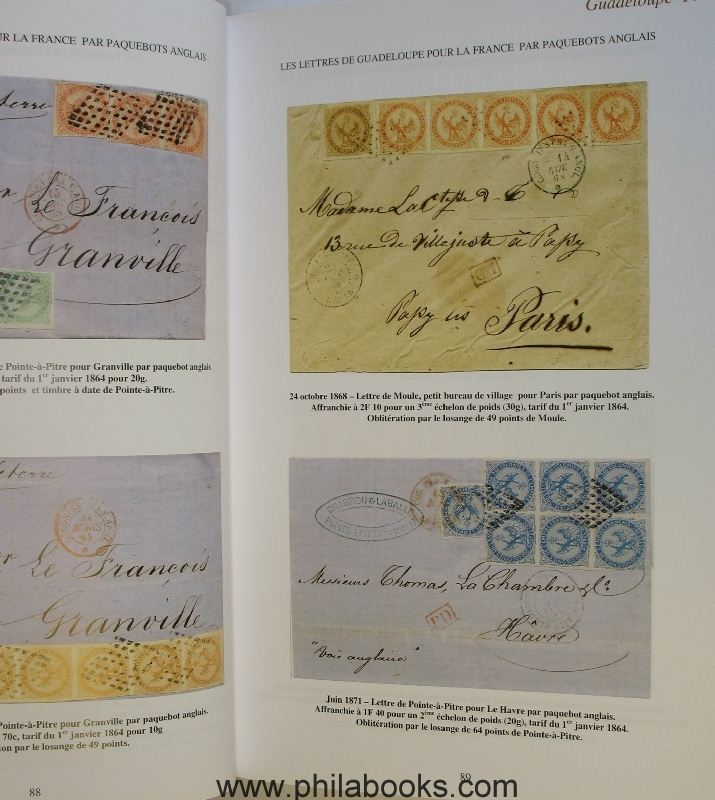 UR LA FRANCE PAR PAQUEBOTS ANGLAIS
Le François
Granville
e Pointe-à-Pitre pour Granville par paquebot anglais
tarif du 1er janvier 1864 pour 20g.
points et timbre à date de Pointe-à-Pitre.
Le François
Granville
Pointe-à-Pitre pour Granville par paquebot anglais.
70c, tarif du 1er janvier 1864 pour 10g
ion par le losange de 49 points.
88
Guadeloupe
LES LETTRES DE GUADELOUPE POUR LA FRANCE PAR PAQUEBOTS ANGLAIS
14
NOV
68
Madame La
13 rue de Villejuste à Passy
Passy les Paris.
24 octobre 1868 – Lettre de Moule, petit bureau de village pour Paris par paquebot anglais.
Affranchie à 2F 10 pour un 3ème échelon de poids (30g), tarif du 1er janvier 1864.
Oblitération par le losange de 49 points de Moule.
Messieurs Thomas, La Chambre & Cie
Hâvre
P.D.
"Voie anglaise"
Juin 1871 – Lettre de Pointe-à-Pitre pour Le Havre par paquebot anglais.
Affranchie à 1F 40 pour un 2ème échelon de poids (20g), tarif du 1er janvier 1864.
Oblitération par le losange de 64 points de Pointe-à-Pitre.
89
www.philabooks.com